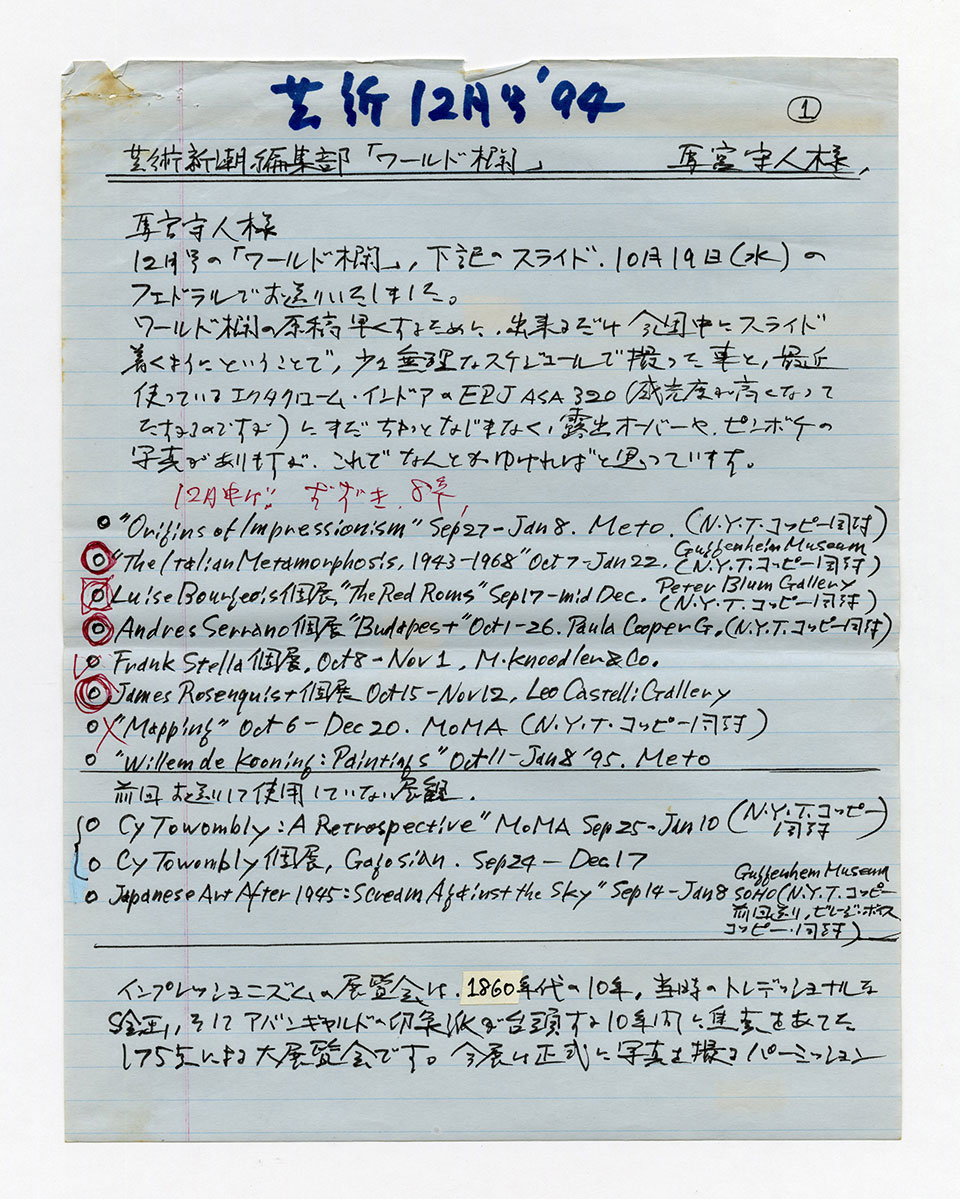 芸新 12月号 '94
1
芸術新潮編集部「ワールド欄」 馬宮守人様,
馬宮守人様
12月号の「ワールド欄」, 下記のスライド. 10月19日(水)の
フェドラルでお送りいたしました。
ワールド欄の原稿早くするために、出来るだけ今週中にスライド
着くようにということで, 少々無理なスケジュールで撮った事と, 最近
使っているエクタクローム・インドアのEPJ ASA 320 (感光度が高くなって
にまだちょっとなじまなく, 露出オーバーや, ピンボケの
写真がありますが、これでなんとかゆければと思っています。
12月
"Origins of Impressionism" Sep,27-Jan 8. Meto. (N.Y.T.コッピー同封)
"The Italian Metamorphosis, 1943-1968" Oct 7-Jan 22. Guggenheim Museum (N.Y.T.コッピー同封)
Luise Bourgeois個展 "The Red Roms" Sep17-mid Dec. Peter Blum Gallery (N.Y.T.コッピー同封)
Andres Serrano個展 "Budapest" Oct1-26. Paula Cooper G. (N.Y.T.コッピー同封)
Frank Stella個展, Oct8-Nov1, M. Knoodler & Co.
James Rosenquist個展 Oct15-Nov12, Leo Castelli Gallery
"Mapping" Oct 6-Dec 20. MoMA (N.Y.T.コッピー同封)
"Willem de Kooning: Paintings" Oct11-Jan8 '95. Meto
前回お送りして使用していない展観.
Cy Towombly: A Retrospective" MoMA Sep25-Jan10 (N.Y.T.コッピー同封)
Cy Towombly個展, Gagosian. Sep24-Dec17
Japanese Art After 1945: Scream Against the Sky" Sep14-Jan8 Guggenhem Museum SOHO (N.Y.T.コッピー
前回送り, ビレージ・ボイス
コッピー・同封)
インプレッショニズムの展覧会は, 1860年代の10年, 当時のトレデッショナルな
絵画, そしてアバンギャルドの印象派が台頭する10年間に焦点をあてた
175点による大展覧会です。今展は正式に写真を撮るパーミッション